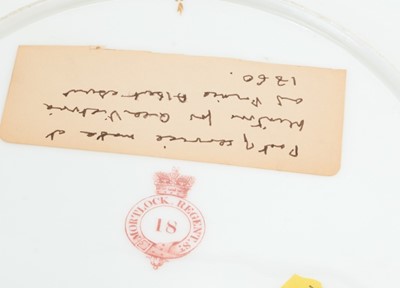 Part of service made at
Minton for Queen Victoria
and Prince Albert about
1860.
MORTLOCK. REGENT. ST.
18